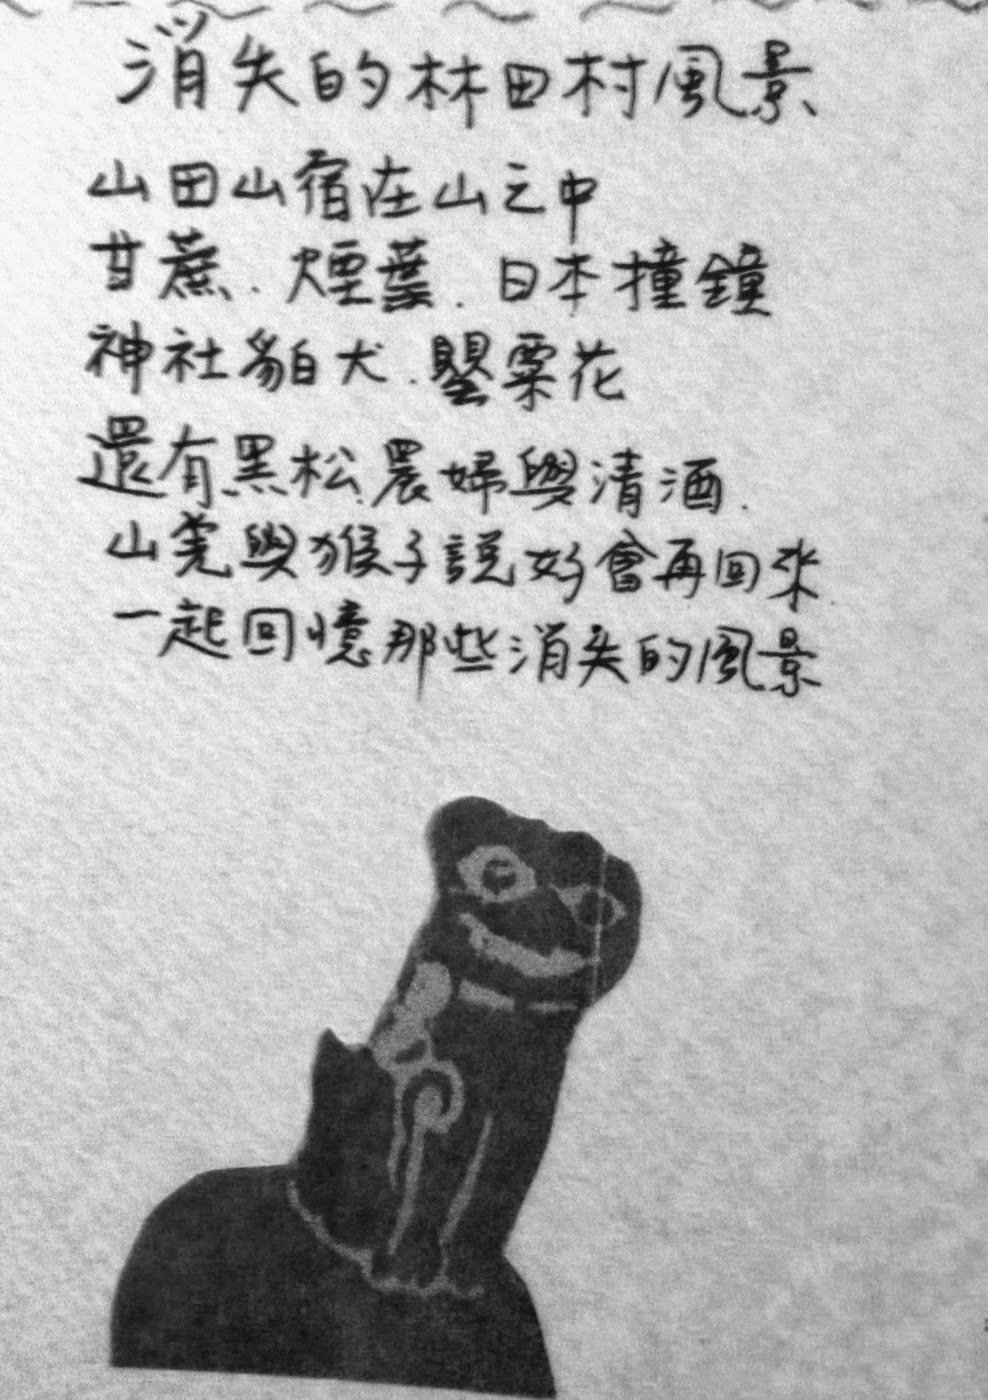 消失的林田村風景
山田山宿在山之中
甘蔗．煙葉．日本撞鐘
神社狛犬．罌粟花
還有黑松．農婦與清酒．
山羌與猴子說好會再回來
一起回憶那些消失的風景